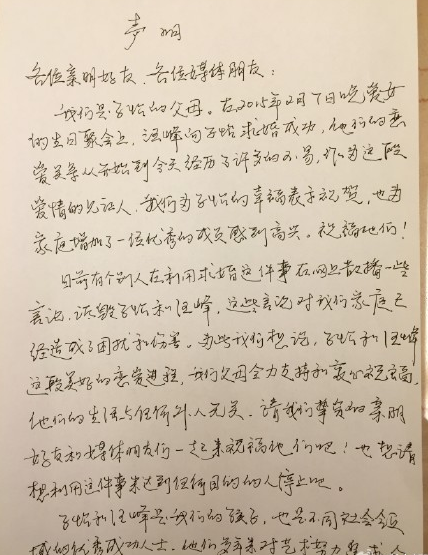 声明
各位亲朋好友、各位媒体朋友：
我们是子怡的父母。在2015年2月7日晚爱女
的生日聚会上，汪峰向子怡求婚成功，他们的恋
爱关系从开始到今天经历了许多的不易，作为这段
爱情的见证人，我们为子怡的幸福表示祝贺，也为
家庭增加了一位优秀的成员感到高兴。祝福他们！
目前有个别人在利用求婚这件事在网上散播一些
言论，诋毁子怡和汪峰，这些言论对我们家庭已
经造成了困扰和伤害。为此我们想说，子怡和汪峰
这段美好的恋爱进程，我们父母全力支持和衷心祝福，
他们的生活与任何外人无关，请我们挚爱的亲朋
好友和媒体朋友们一起来祝福他们吧！也想请
想利用这件事来达到任何目的的人停止吧。
子怡和汪峰是我们的孩子，也是不同社会
域的优秀成功人士，他们多年来对艺术努力